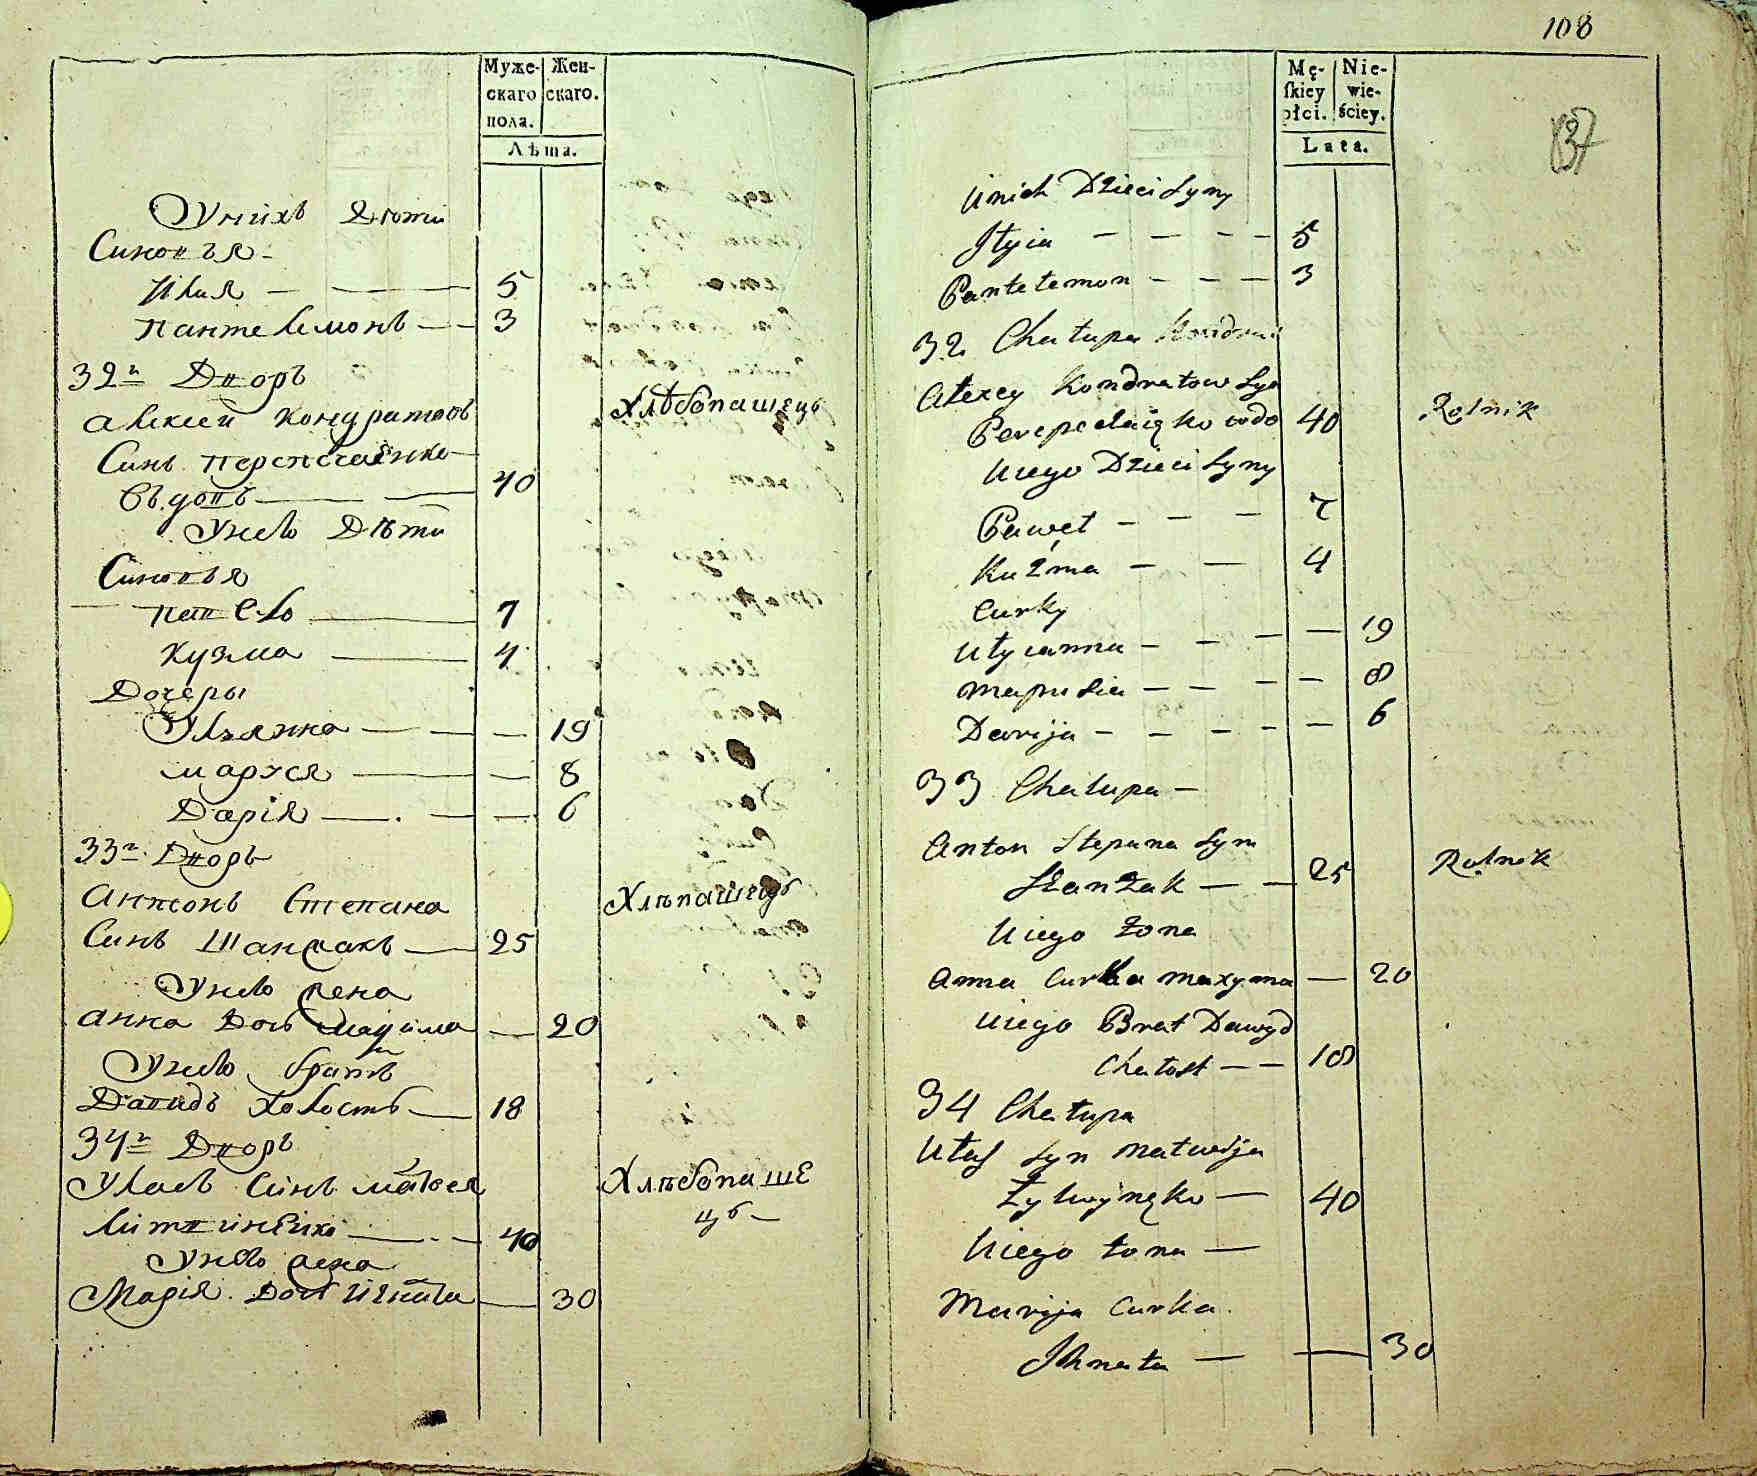 Муже-
скаго
пола.
Жен-
скаго.
Лѣта.
Унихъ Дѣти
Синовья -
Илия — — 5
Пантелимонъ — — 3
32й Дворъ
Алексѣй Кондратовъ Хлѣбопашецъ
Синъ
Въдовъ — — 40
Унево Дѣти
Синовья
Павело — 7
Кузма — 4
Дочеры
Ульянна — — — 19
Маруся — — 8
Дарія — . — — 6
33й Дворъ
Антонъ Степана Хлѣпашецъ
Синъ Шанжакъ — 25
Унево жена
Анна Доч — 20
Унево братъ
Давидъ Холостъ — 18
34й Дворъ
Уласъ Синъ Матвея Хлѣбопаше
цъ —
Литвиненко — . - — 40
Унево жена
Марія Доч Игната — 30
108
Mę-
ſkiey
płci.
Nie-
wie-
ściey.
Lata.
137
Unich Dzieci Syny
Jłyia — — - — 5
Pantelemon — - — 3
32 Chałupa
Alexey Kondratow Syn
Perepelaięko wdo 40 Rolnik
Uiego Dzieci Syny
Paweł — — — 7
Kuźma — — 4
Curky
Ulyianna — — — — 19
Marusia — — — — 8
Darija — — — - — 6
33 Chałupa —
Anton Stepana Syn
Szanżak — — 25 Rolnik
Uiego Żona
Anna Curka Maxyma — 20
Uiego Brat Dawyd
Chałost — — 18
34 Chałupa
Ułas Syn Matwija
Łytwynęko — 40
Uiego żona —
Marija Curka .
Jhnata — — 30